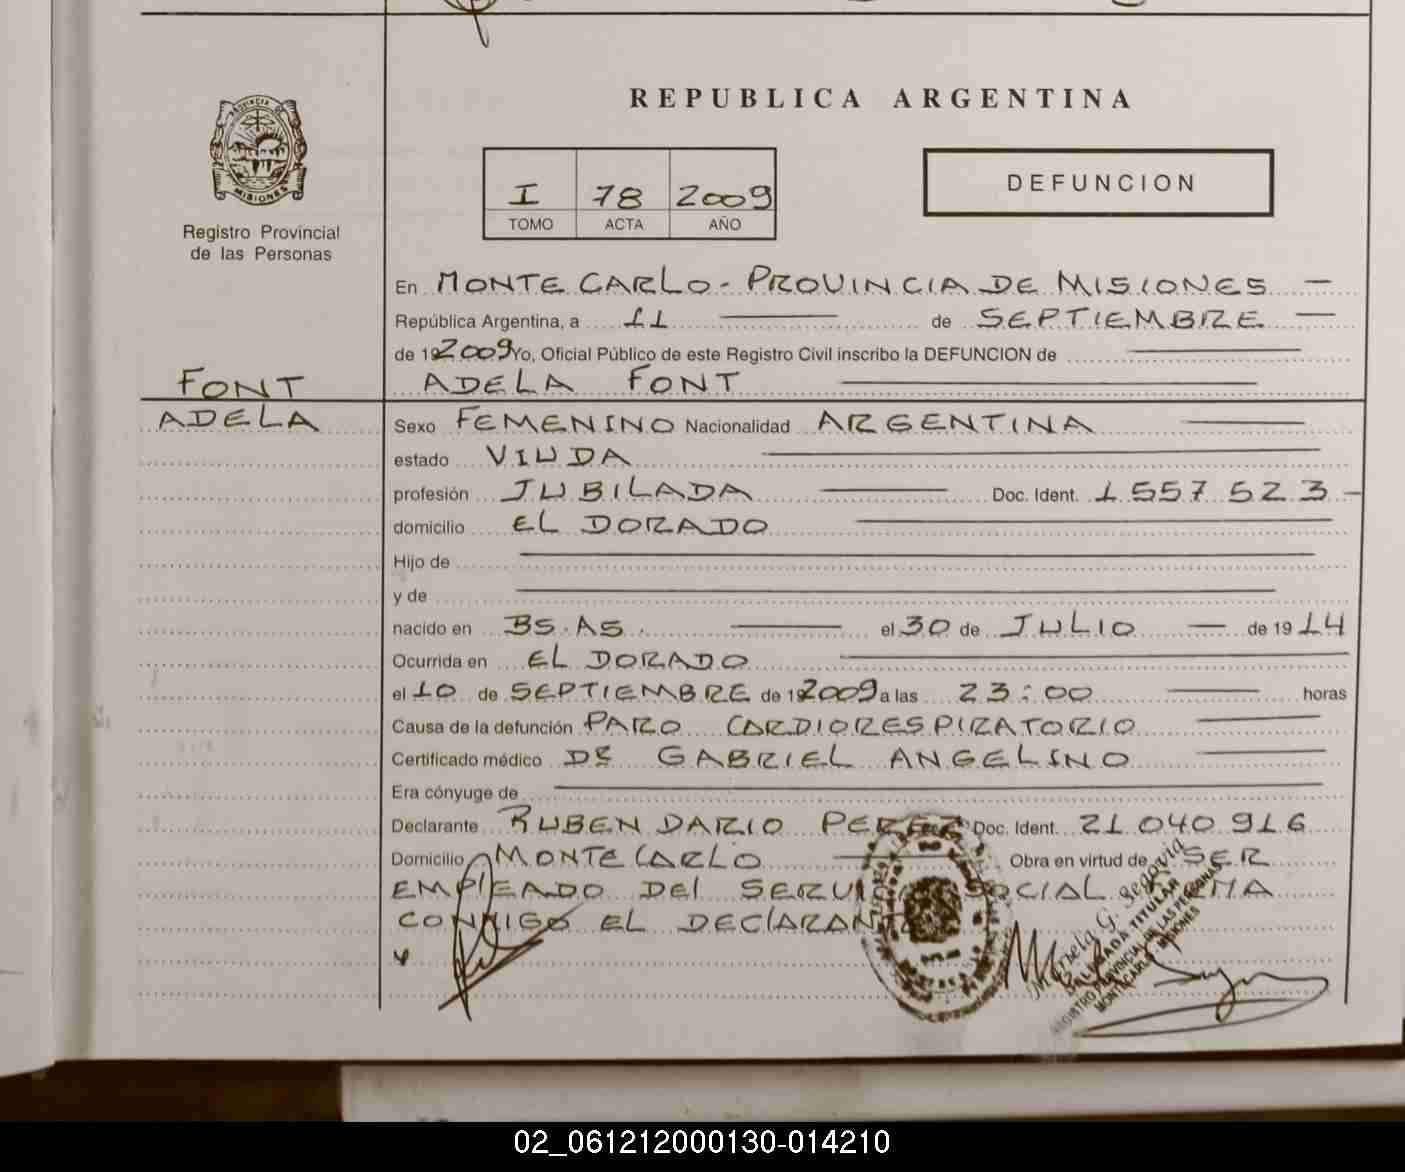 PROVINCIA DE
MISIONES
Registro Provincial
de las Personas
REPUBLICA ARGENTINA
I 78 2009
TOMO ACTA AÑO
DEFUNCION
En MONTE CARLO - PROVINCIA DE MISIONES —
República Argentina, a 11 — de SEPTIEMBRE —
de 192009 Yo, Oficial Público de este Registro Civil inscribo la DEFUNCION de —
ADELA FONT —
FONT
ADELA
Sexo FEMENINO Nacionalidad ARGENTINA —
estado VIUDA —
profesión JUBILADA — Doc. Ident. 1557523 -
domicilio EL DORADO —
Hijo de —
y de —
nacido en BS.AS. — el 30 de JULIO — de 19 14
Ocurrida en EL DORADO —
el 10 de SEPTIEMBRE de 192009 a las 23:00 — horas
Causa de la defunción PARO CARDIORESPIRATORIO —
Certificado médico DR GABRIEL ANGELINO —
Era cónyuge de —
Declarante RUBEN DARIO PEREZ Doc. Ident. 21040916
Domicilio MONTE CARLO — Obra en virtud de SER
EMPLEADO DEL SOCIAL
CONMIGO EL
Mariela G. Segovia
DELEGADA TITULAR
REGISTRO PROVINCIAL DE LAS PERSONAS
MONTECARLO MISIONES
02_061212000130-014210